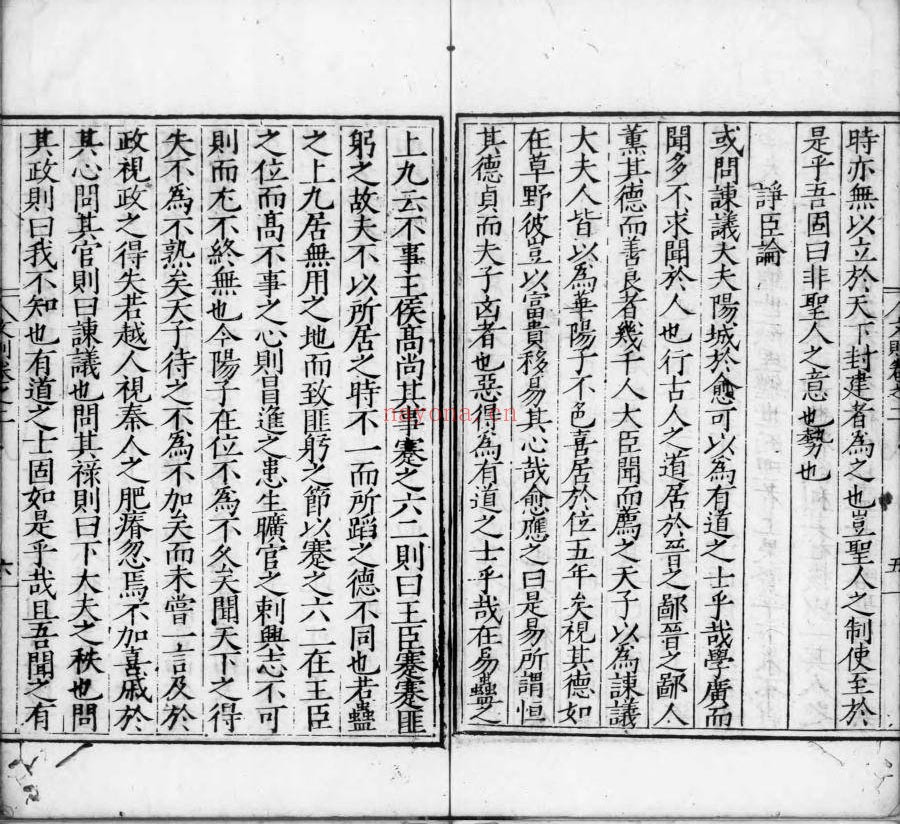 時亦無以立於天下封建者為之也豈聖人之制使至於
是乎吾固曰非聖人之意也勢也
諍臣論
或問諫議大夫陽城於愈可以為有道之士乎哉學廣而
聞多不求聞於人也行古人之道居於晉之鄙晉之鄙人
薰其德而善良者幾千人大臣聞而薦之天子以為諫議
大夫人皆以為華陽子不色喜居於位五年矣視其德如
在草野彼豈以富貴移易其心哉愈應之曰是易所謂恒
其德貞而夫子凶者也惡得為有道之士乎哉在易蠱之
文則卷之二
五
上九云不事王侯高尚其事蹇之六二則曰王臣蹇蹇匪
躬之故夫不以所居之時不一而所蹈之德不同也若蠱
之上九居無用之地而致匪躬之節以蹇之六二在王臣
之位而高不事之心則冒進之患生曠官之刺興志不可
則而尤不終無也今陽子在位不為不久矣聞天下之得
失不為不熟矣天子待之不為不加矣而未嘗一言及於
政視政之得失若越人視秦人之肥瘠忽焉不加喜戚於
其心問其官則曰諫議也問其祿則曰下大夫之秩也問
其政則曰我不知也有道之士固如是乎哉且吾聞之有
文則卷之二
六
nayona.cn